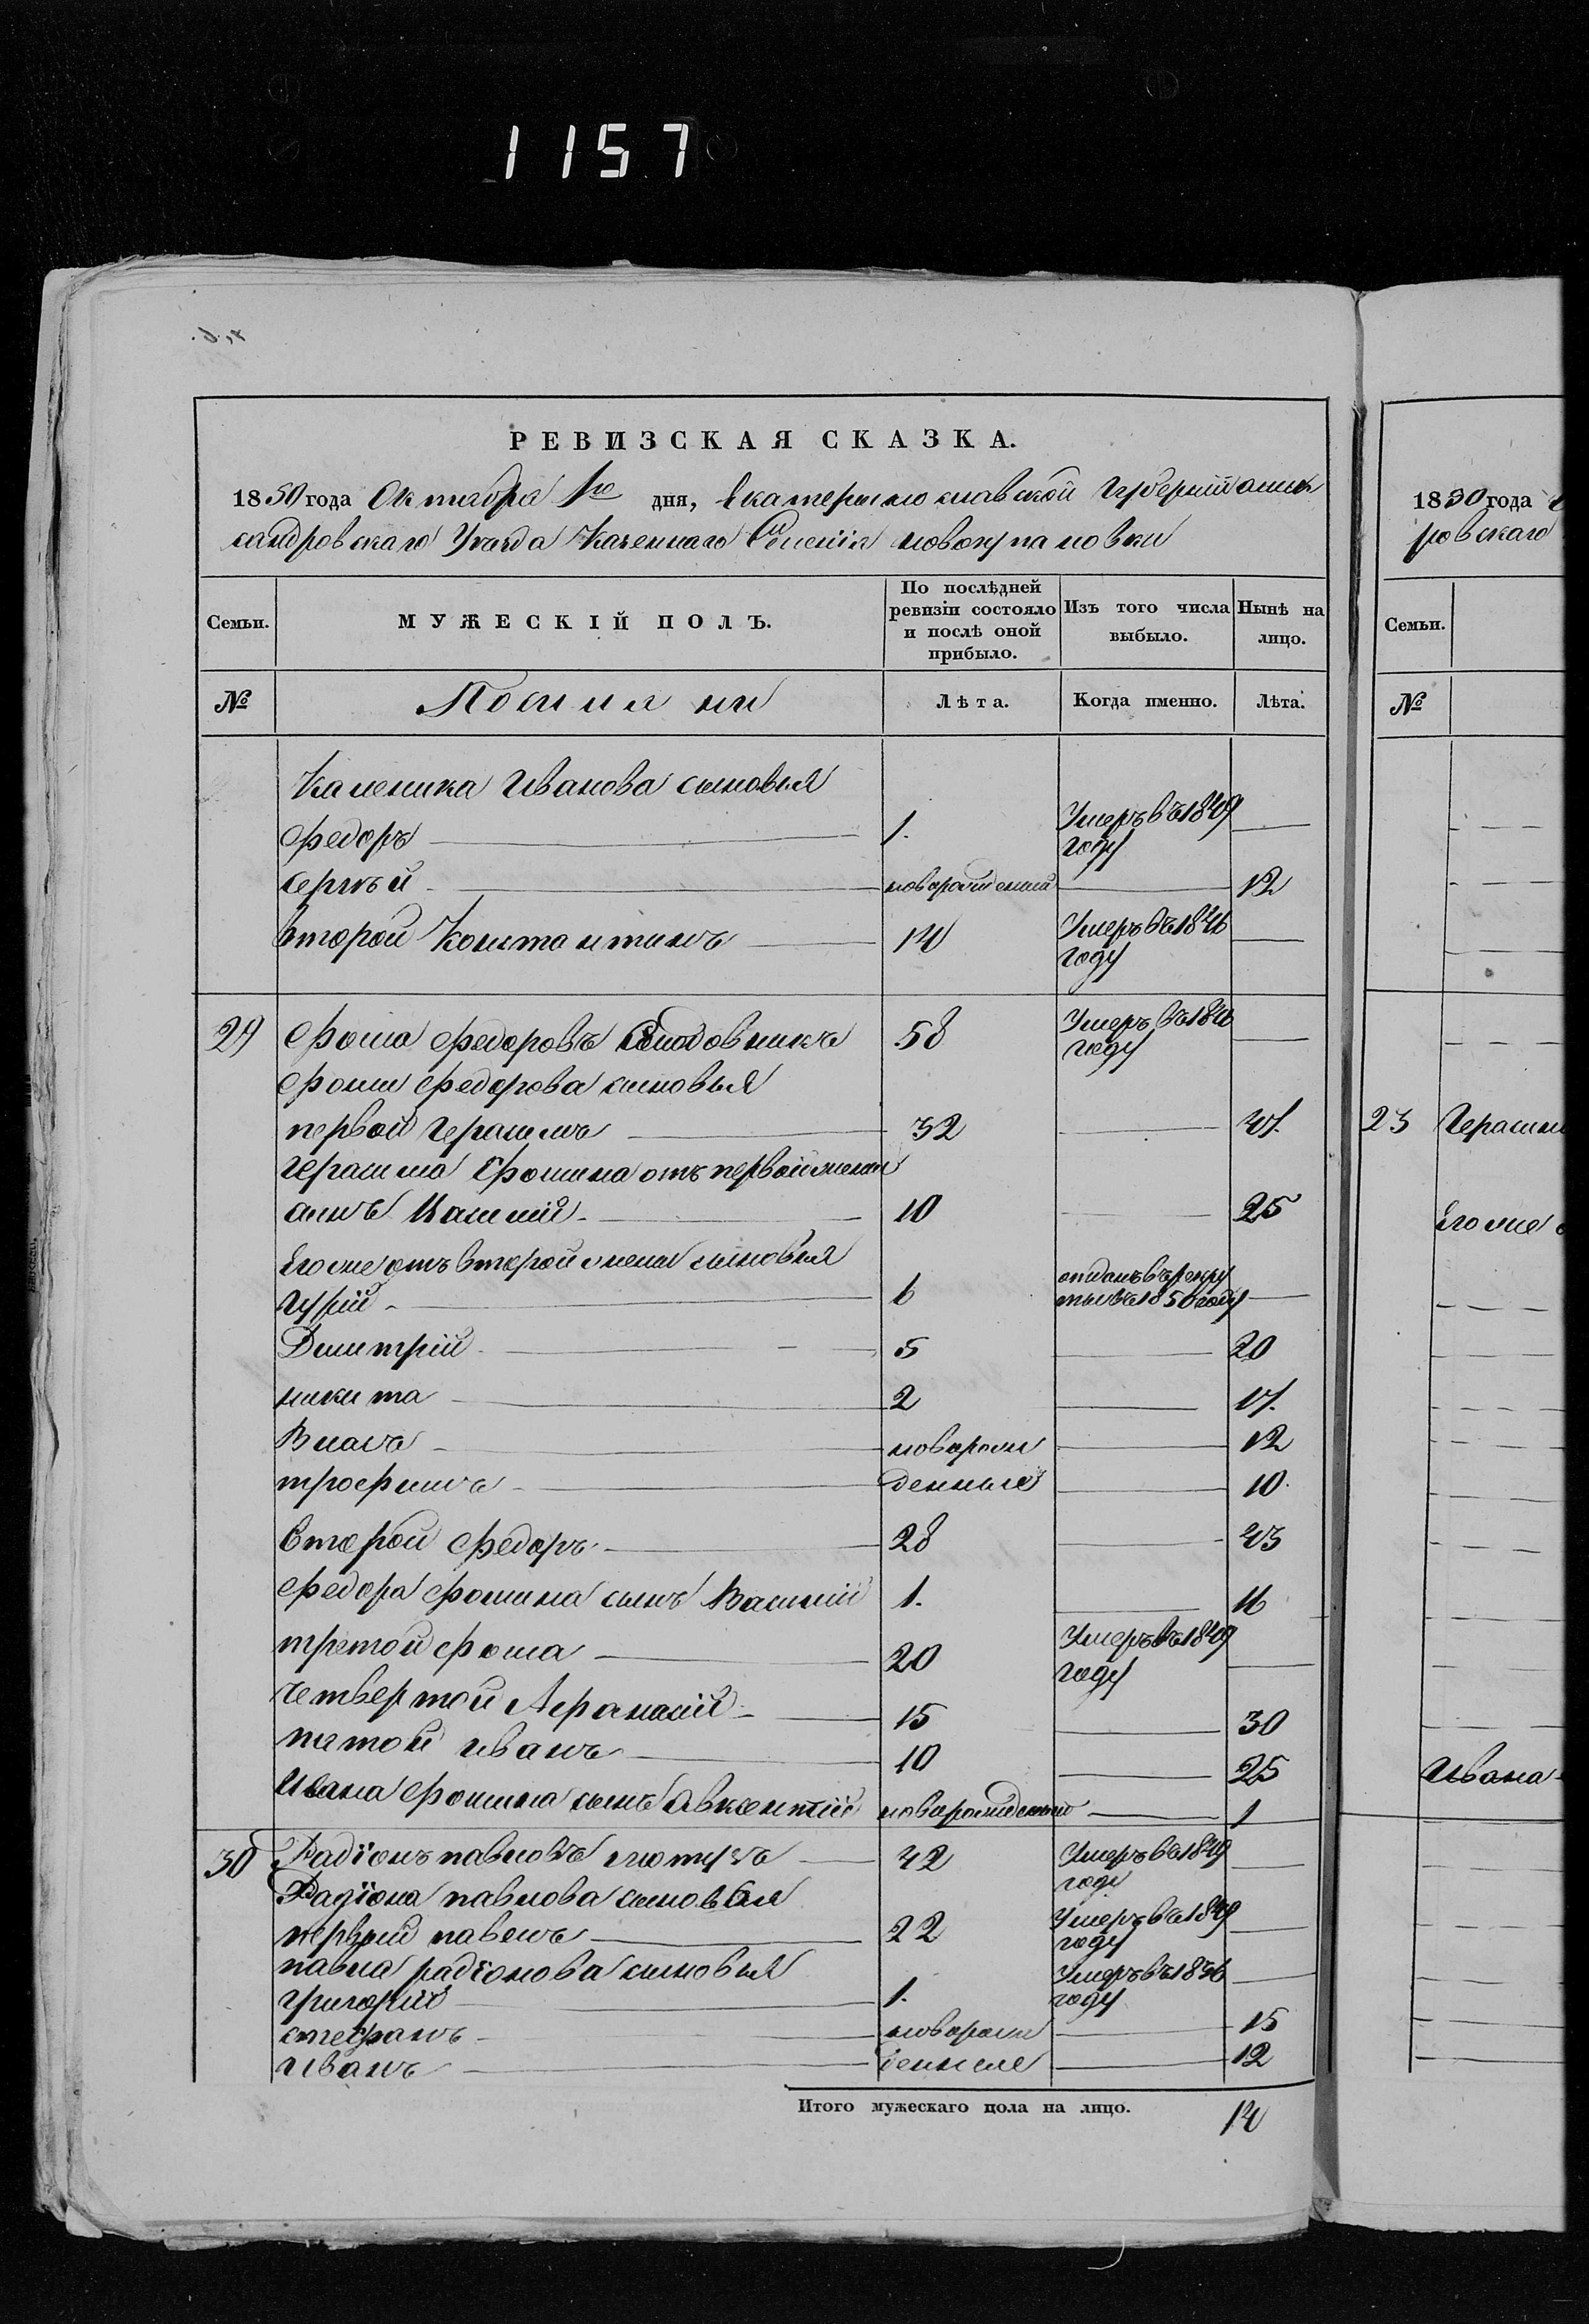 1157
РЕВИЗСКАЯ СКАЗКА.
1850 года Октября 1го дня, Екатеринославской Губерніи Алек
сандровскаго Уезда Казеннаго Селенія новокупановки
Семьи. МУЖЕСКІЙ ПОЛЪ. По послѣдней ревизіи состояло и послѣ оной прибыло. Изъ того числа выбыло. Нынѣ на лицо.
№ Поселяни Лѣта. Когда именно. Лѣта.
Каленика Иванова сыновья
Федоръ 1. Умеръ въ 1849 году
Сергѣй новорожденный 12
второй Констанътинъ 14 Умеръ въ 1846 году
29 Фома Федоровъ 58 Умеръ въ 1846 году
Фомы Федорова сыновья
первой Герасимъ 32 47.
Герасима Фомина отъ первой жены
сынъ Василій 10 25
Его же отъ второй жены сыновья
Гурій 6 отданъ въ рекруты въ 1850 году
Димитрій 5 20
никита 2 17.
Власъ новорож 12
трофимъ денные 10.
Второй Федоръ 28 43
Федора Фомина сынъ Василій 1. 16
третой Фома 20 Умеръ въ 1849 году
четвертой Афанасий 15 30
пятой иванъ 10 25
Ивана Фомина сынъ Авксентій новорожденный 1
30 Радїонъ павловъ 42 Умеръ въ 1849 году
Радїона павлова сыновья
первый павелъ 22 Умеръ въ 1849 году
павла радїонова сыновья
григорій 1. Умеръ въ 1836 году
стефанъ новорож 15
Иванъ денные 12
Итого мужескаго пола на лицо. 14
1850 года
ровскаго
Семьи.
№
23 Герасим
Его же
Ивана